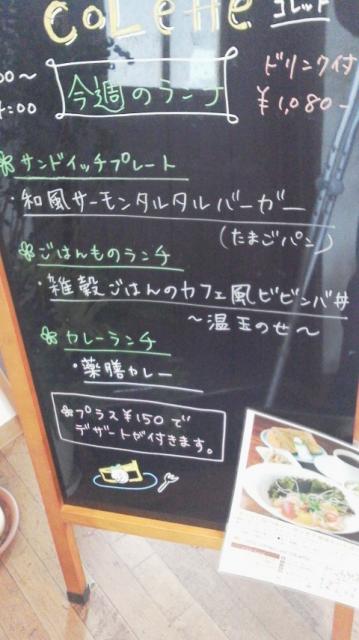 CoLette コレット
00〜
4:00
今週のランチ
ドリンク付
¥1,080-
サンドイッチプレート
・和風サーモンタルタルバーガー
(たまごパン)
ごはんものランチ
・雑穀ごはんのカフェ風ビビンバ丼
〜温玉のせ〜
カレーランチ
・薬膳カレー
プラス¥150で
デザートが付きます。